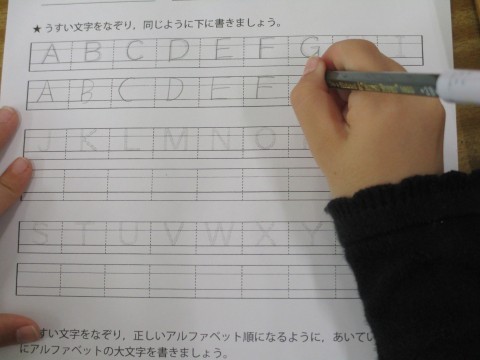 ★うすい文字をなぞり，同じように下に書きましょう。
A B C D E F G I
A B C D E F
J K L M N O
S T U V W X Y
すい文字をなぞり，正しいアルファベット順になるように，あいてい
にアルファベットの大文字を書きましょう。